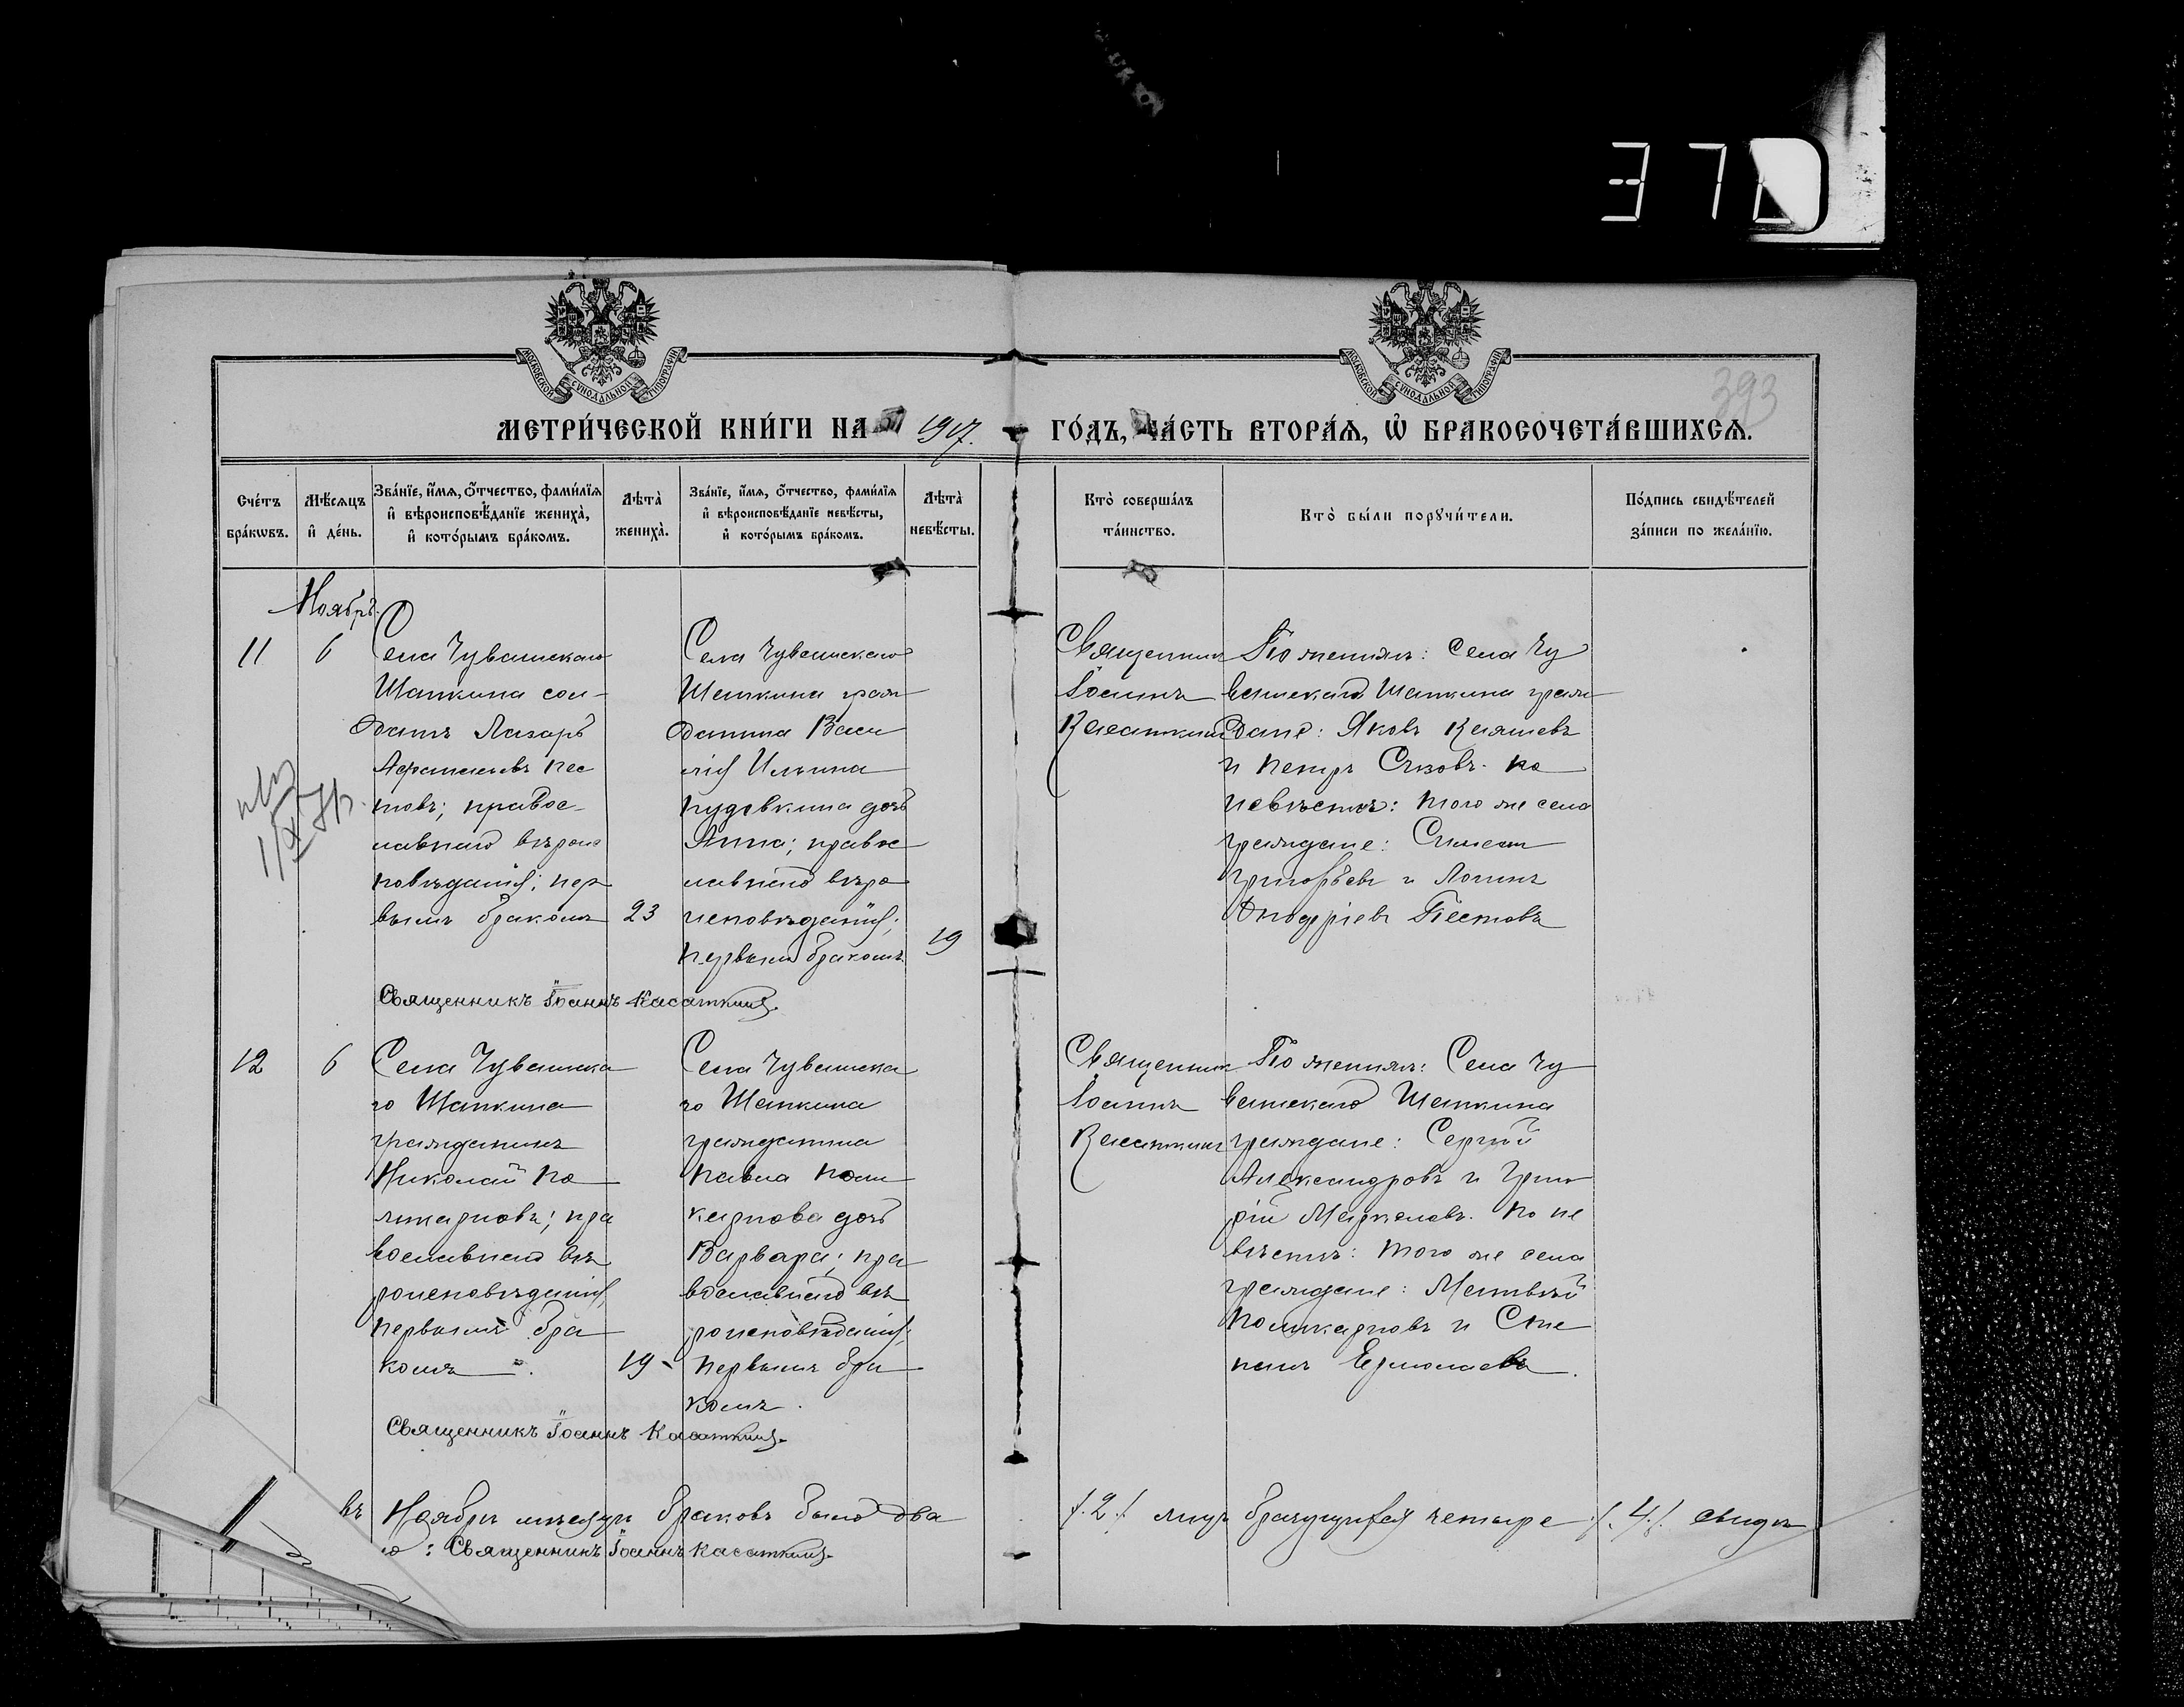 370
393
МОСКОВСКОЙ СѴНОДАЛЬНОЙ ТИПОГРАФІИ
МОСКОВСКОЙ СѴНОДАЛЬНОЙ ТИПОГРАФІИ
МЕТРИ́ЧЕСКОЙ КНИ́ГИ НА 1917. ГО́ДЪ, ЧА́СТЬ ВТОРА́Ѧ, Ѡ҆ БРАКОСОЧЕТА́ВШИХСѦ.
Сче́тъ
бра́кѡвъ.
Мѣ́сяцъ
и҆ де́нь.
Зва́нїе, и҆́мѧ, ѻ҆́тчество, фами́лїѧ
и҆ вѣроисповѣ́данїе жениха̀,
и҆ кото́рымъ бра́комъ.
Лѣта̀
жениха̀.
Зва́нїе, и҆́мѧ, ѻ҆́тчество, фами́лїѧ
и҆ вѣроисповѣ́данїе невѣ́сты,
и҆ кото́рымъ бра́комъ.
Лѣта̀
невѣ́сты.
Кто̀ соверша́лъ
та́инство.
Кто̀ бы́ли порꙋчи́тели.
По́дпись свидѣ́телей
за́писи по жела́нїю.
Ноябрь
11
6
Села Чувашскаго
Шапкина сол-
датъ Лазарь
Пес
товъ; правос-
лавнаго вѣроис
повѣданія; пер
вымъ бракомъ
23
Села Чувашскаго
Шапкина граж
данина Васи
лія Ильина
Пудовкина дочь
Анна; правос
лавнаго вѣро
исповѣданія;
первымъ бракомъ
19
Священникъ
Іоаннъ
Касаткинъ
По женихѣ: Села Чу
вашскаго Шапкина граж
дане: Яковъ Князевъ
и Петръ Сызовъ. По
невѣстѣ: того же села
граждане: Симеонъ
Григорьевъ и Логинъ
Онофріевъ Пестовъ
Священникъ Іоаннъ Касаткинъ.
12
6
Села Чувашска
го Шапкина
гражданинъ
Николай По
ликарповъ; пра
вославнаго вѣ
роисповѣданія,
первымъ бра
комъ.
19
Села Чувашска
го Шапкина
гражданина
Павла Поли
карпова дочь
Варвара; пра
вославнаго вѣ
роисповѣданія;
первымъ бра
комъ.
Священникъ
Іоаннъ
Касаткинъ
По женихѣ: Села Чу
вашскаго Шапкина
граждане: Сергій
Александровъ и Григо
рій Маркеловъ. По не
вѣстѣ: того же села
граждане: Матвѣй
Поликарповъ и Сте
панъ Ермолаевъ.
Священникъ Іоаннъ Касаткинъ.
въ Ноябрѣ мѣсяцѣ браковъ было два /.2./ лицъ брачущихся четыре /.4./. свидѣ
ю: Священникъ Іоаннъ Касаткинъ.